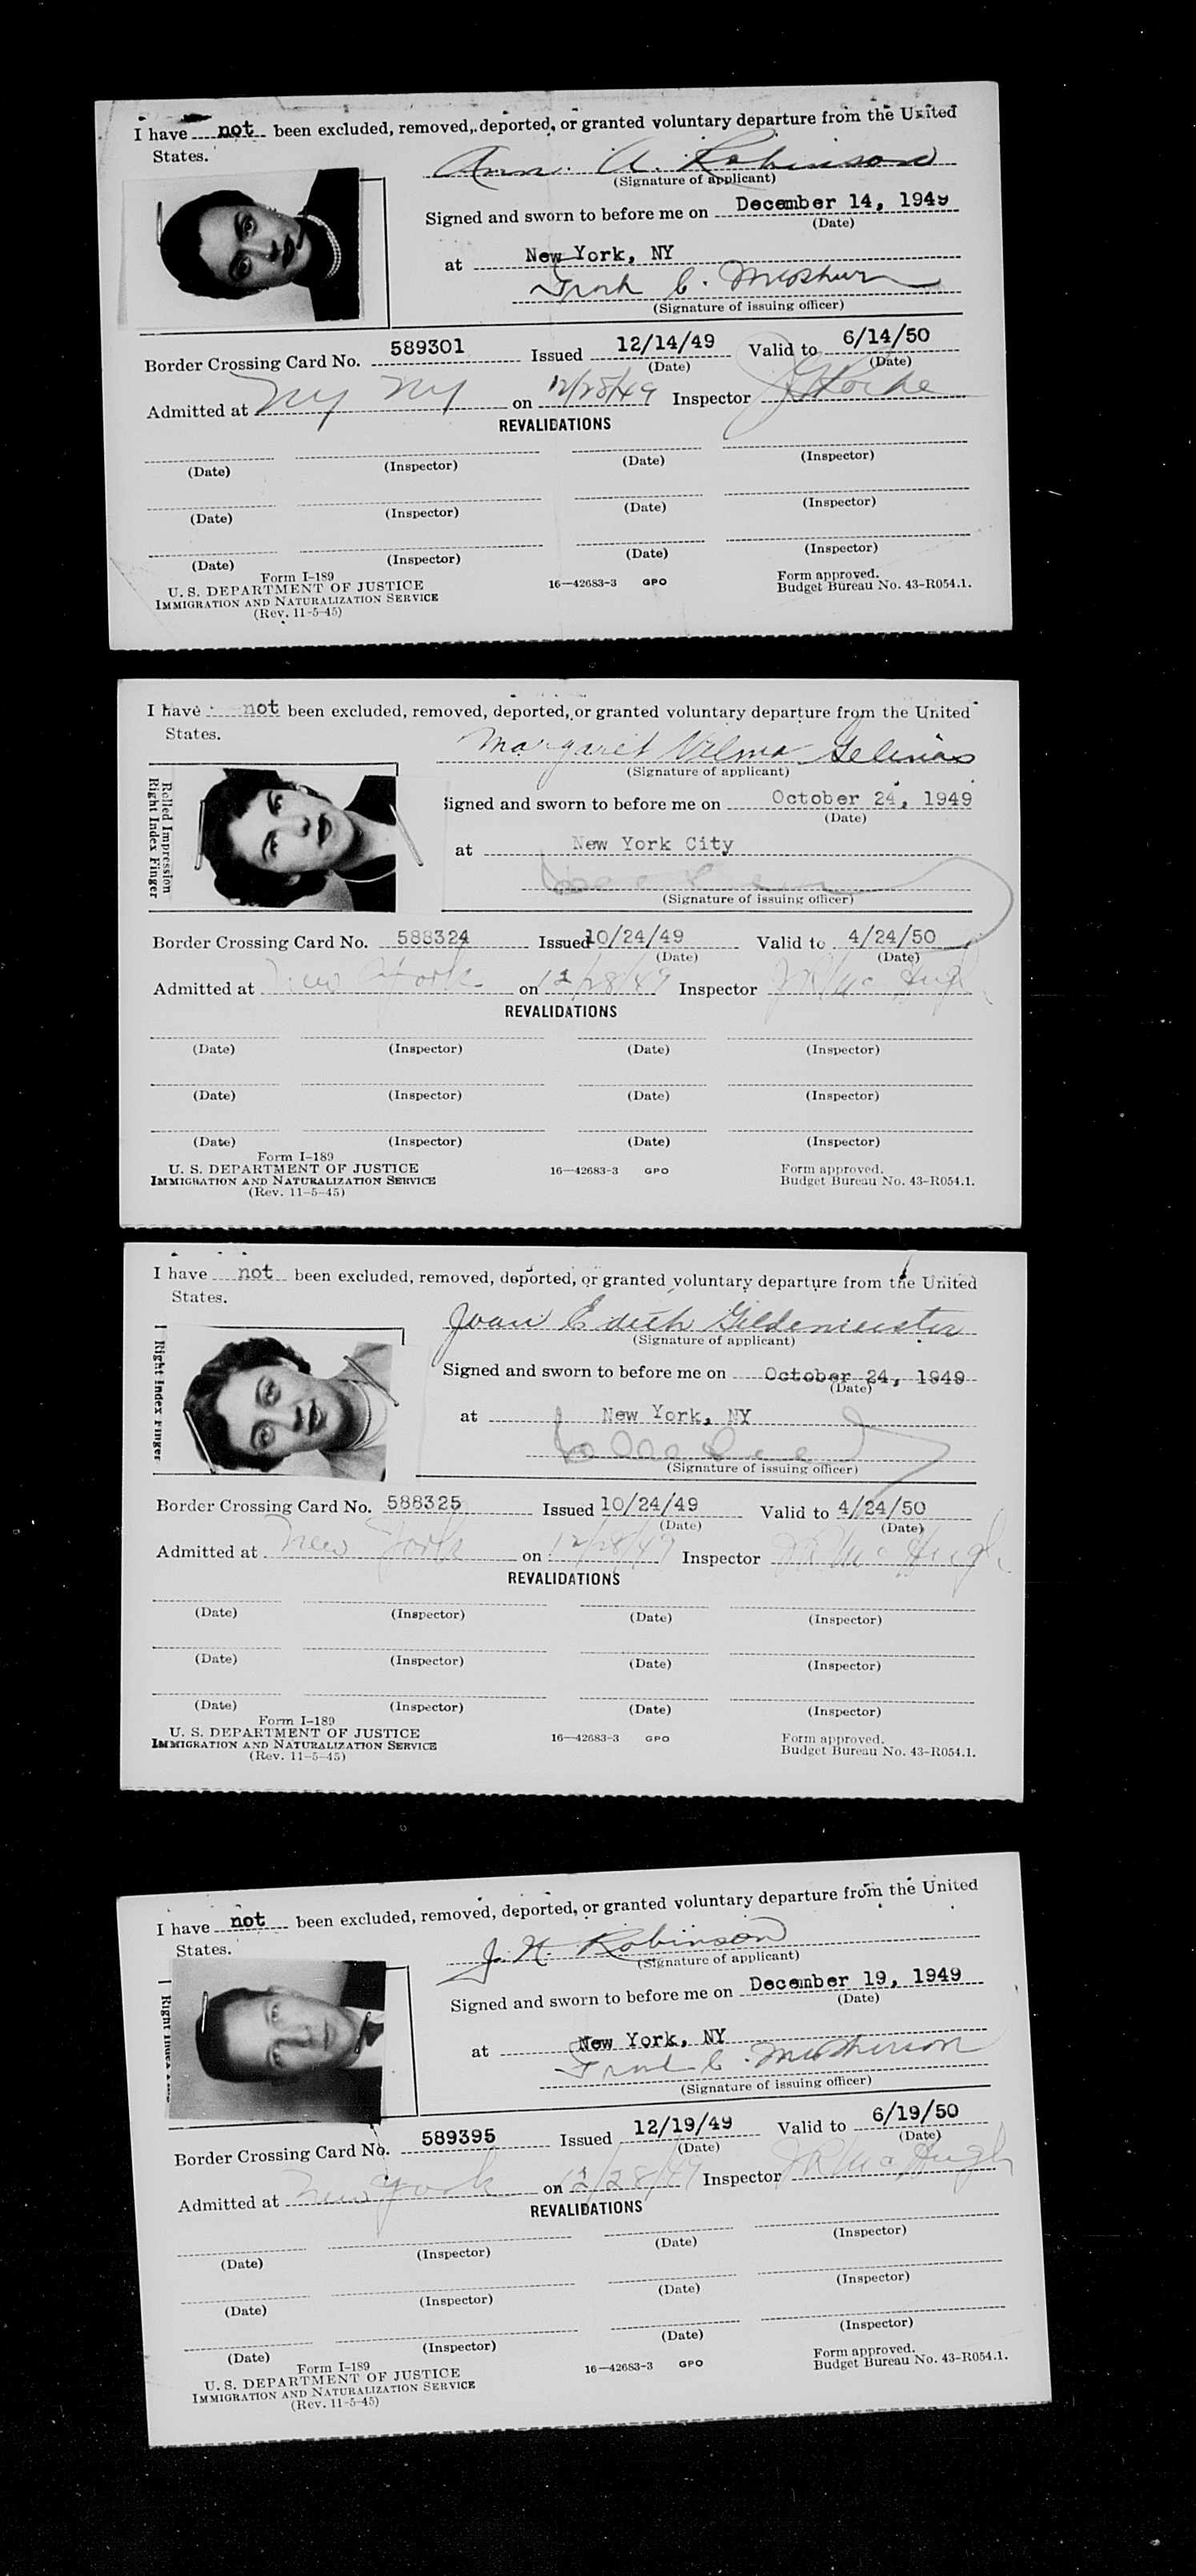 I have not been excluded, removed, deported, or granted voluntary departure from the United
States.
Ann. A. Robinson
(Signature of applicant)
Signed and sworn to before me on December 14, 1949
(Date)
at New York, NY
Frank C.
(Signature of issuing officer)
Border Crossing Card No. 589301 Issued 12/14/49 Valid to 6/14/50
(Date) (Date)
Admitted at NY NY on 12/28/49 Inspector
REVALIDATIONS
(Date) (Inspector) (Date) (Inspector)
(Date) (Inspector) (Date) (Inspector)
(Date) (Inspector) (Date) (Inspector)
Form I-189
U. S. DEPARTMENT OF JUSTICE 16—42683-3 GPO Form approved.
IMMIGRATION AND NATURALIZATION SERVICE Budget Bureau No. 43-R054.1.
(Rev. 11-5-45)
I have not been excluded, removed, deported, or granted voluntary departure from the United
States.
Margaret Vilma Gelinas
(Signature of applicant)
Rolled Impression
Right Index Finger
Signed and sworn to before me on October 24, 1949
(Date)
at New York City
(Signature of issuing officer)
Border Crossing Card No. 588324 Issued 10/24/49 Valid to 4/24/50
(Date) (Date)
Admitted at New York on 12/28/49 Inspector J R McHugh
REVALIDATIONS
(Date) (Inspector) (Date) (Inspector)
(Date) (Inspector) (Date) (Inspector)
(Date) (Inspector) (Date) (Inspector)
Form I-189
U. S. DEPARTMENT OF JUSTICE 16—42683-3 GPO Form approved.
IMMIGRATION AND NATURALIZATION SERVICE Budget Bureau No. 43-R054.1.
(Rev. 11-5-45)
I have not been excluded, removed, deported, or granted voluntary departure from the United
States.
Joan Edith Gildemeister
(Signature of applicant)
Right Index Finger
Signed and sworn to before me on October 24, 1949
(Date)
at New York, NY
(Signature of issuing officer)
Border Crossing Card No. 588325 Issued 10/24/49 Valid to 4/24/50
(Date) (Date)
Admitted at New York on 12/28/49 Inspector J R McHugh
REVALIDATIONS
(Date) (Inspector) (Date) (Inspector)
(Date) (Inspector) (Date) (Inspector)
(Date) (Inspector) (Date) (Inspector)
Form I-189
U. S. DEPARTMENT OF JUSTICE 16—42683-3 GPO Form approved.
IMMIGRATION AND NATURALIZATION SERVICE Budget Bureau No. 43-R054.1.
(Rev. 11-5-45)
I have not been excluded, removed, deported, or granted voluntary departure from the United
States.
J. H. Robinson
(Signature of applicant)
Right Index
Signed and sworn to before me on December 19, 1949
(Date)
at New York, NY
Frank C.
(Signature of issuing officer)
Border Crossing Card No. 589395 Issued 12/19/49 Valid to 6/19/50
(Date) (Date)
Admitted at New York on 12/28/49 Inspector J R McHugh
REVALIDATIONS
(Date) (Inspector) (Date) (Inspector)
(Date) (Inspector) (Date) (Inspector)
(Date) (Inspector) (Date) (Inspector)
Form I-189
U. S. DEPARTMENT OF JUSTICE 16—42683-3 GPO Form approved.
IMMIGRATION AND NATURALIZATION SERVICE Budget Bureau No. 43-R054.1.
(Rev. 11-5-45)